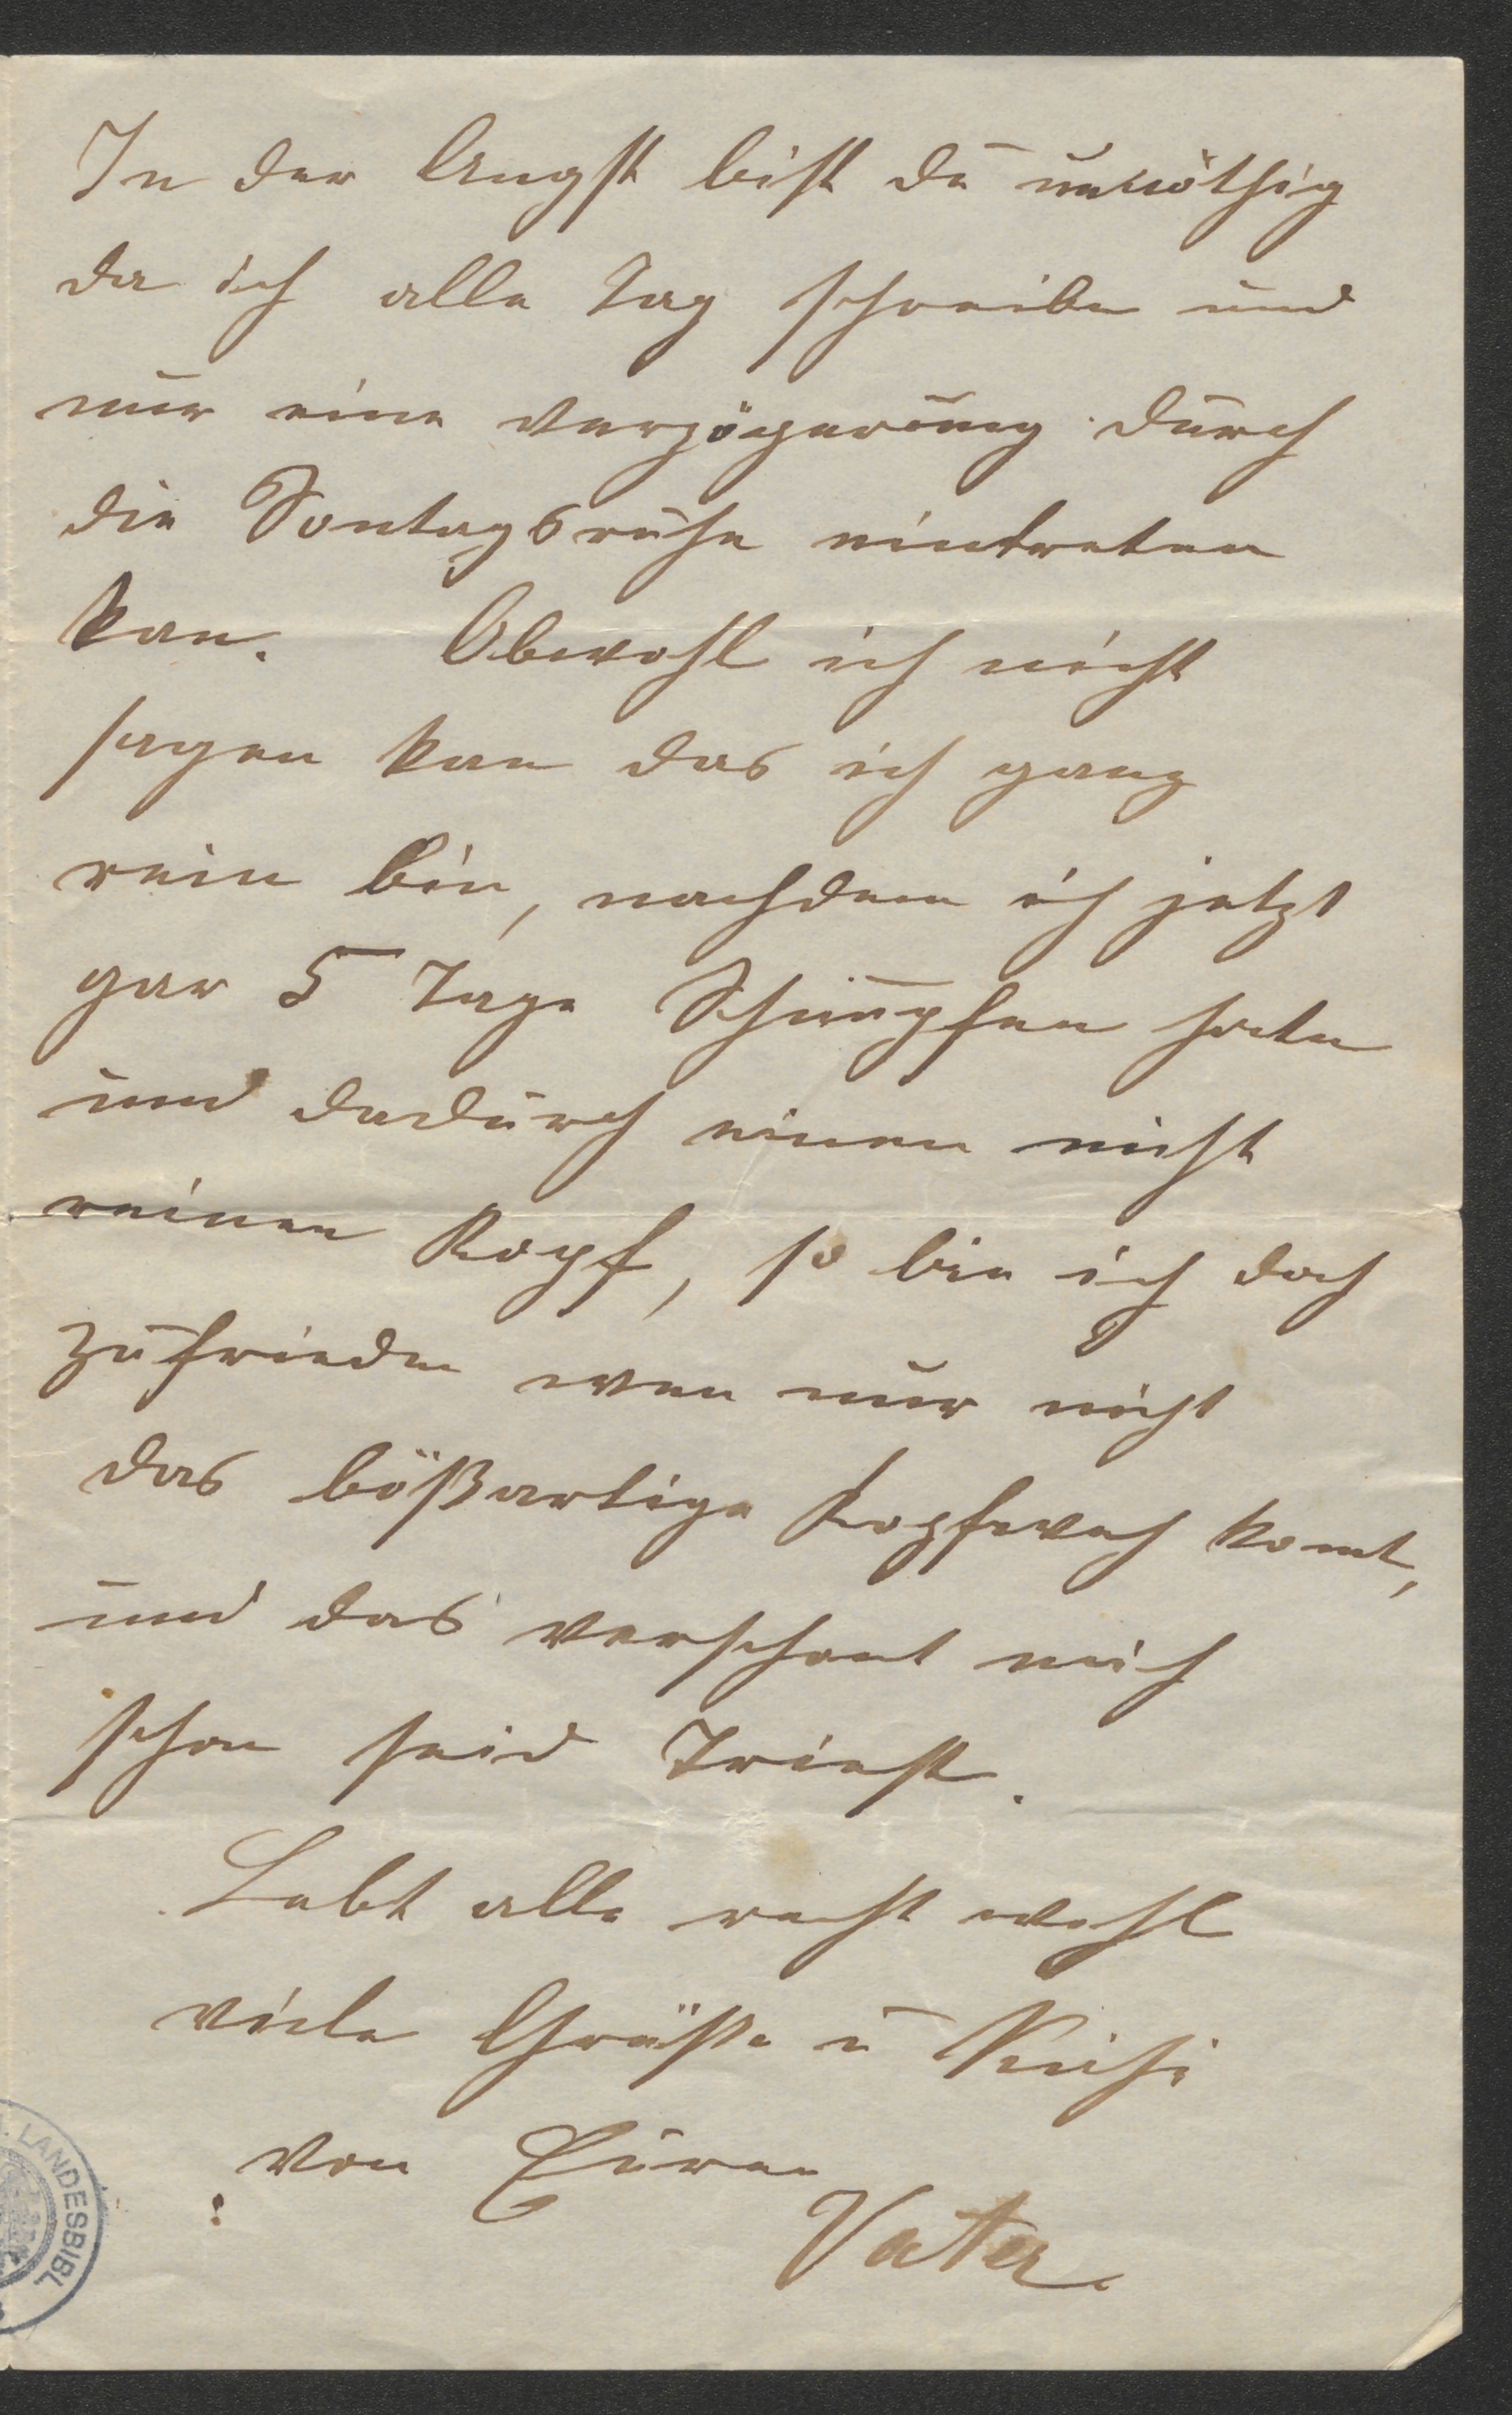 In der Angst bist du unnöthig
da ich alle Tag schreibe und
nur eine verzögerung durch
die Sontagsruhe eintreten
kan. Obwohl ich nicht
sagen kan das ich ganz
rein bin, nachdem ich jetzt
gar 5 Tage Schnupfen hate
und dadurch einen nicht
reinen Kopf, so bin ich doch
zufrieden wen nur nicht
das bößartige Kopfweh komt,
und das verschont mich
schon seid Triest.
Lebt alle recht wohl
viele Grüße u
von Euren
Vater.
LANDESBIBL